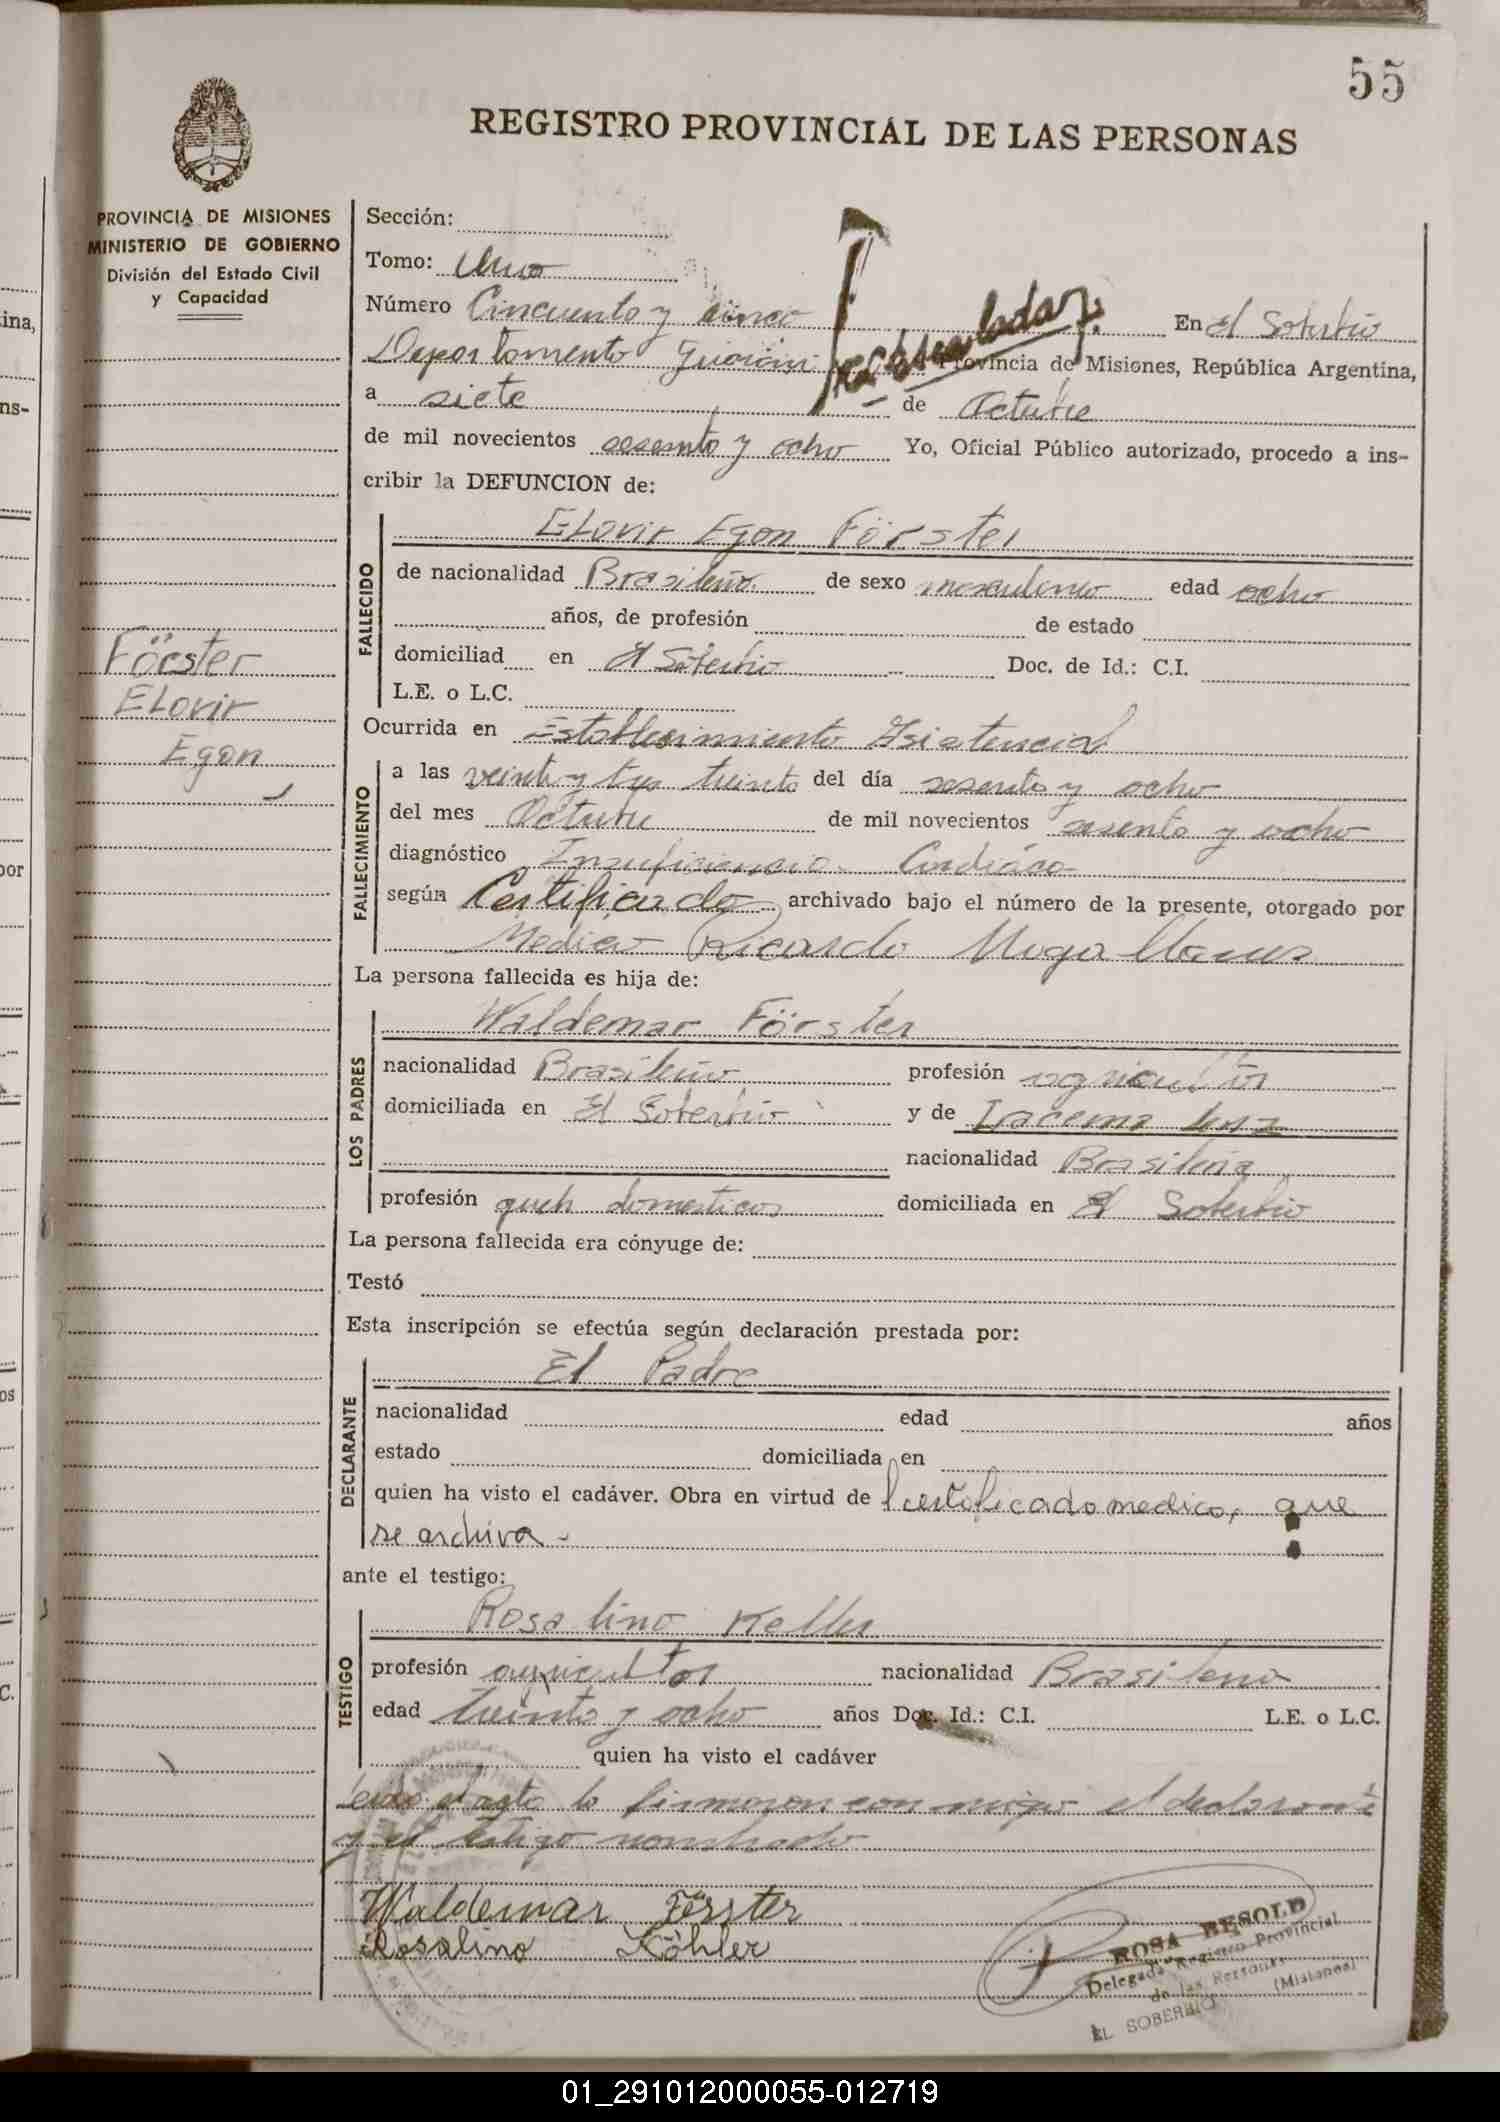 55
REGISTRO PROVINCIAL DE LAS PERSONAS
PROVINCIA DE MISIONES
MINISTERIO DE GOBIERNO
División del Estado Civil
y Capacidad
Sección:
Tomo: Uno
Número Cincuenta y cinco En El Soberbio
Departamento Guaraní Provincia de Misiones, República Argentina,
a siete de Octubre
de mil novecientos sesenta y ocho Yo, Oficial Público autorizado, procedo a ins-
cribir la DEFUNCION de:
FALLECIDO
Elovir Egon Förster
de nacionalidad Brasileño de sexo masculino edad ocho
años, de profesión de estado
domiciliad en El Soberbio Doc. de Id.: C.I.
L.E. o L.C.
Förster
Elovir
Egon
Ocurrida en Establecimiento Asistencial
FALLECIMIENTO
a las veinte y tres treinta del día sesenta y ocho
del mes Octubre de mil novecientos sesenta y ocho
diagnóstico Insuficiencia Cardiaca
según Certificado archivado bajo el número de la presente, otorgado por
Medico Ricardo
La persona fallecida es hija de:
LOS PADRES
Waldemar Förster
nacionalidad Brasileño profesión agricultor
domiciliada en El Soberbio y de Iracema
nacionalidad Brasileña
profesión domesticos domiciliada en El Soberbio
La persona fallecida era cónyuge de:
Testó
Esta inscripción se efectúa según declaración prestada por:
DECLARANTE
El Padre
nacionalidad edad años
estado domiciliada en
quien ha visto el cadáver. Obra en virtud de certificado medico, que
se archiva -
ante el testigo:
TESTIGO
Rosalino Keller
profesión agricultor nacionalidad Brasileno
edad treinta y ocho años Doc. Id.: C.I. L.E. o L.C.
quien ha visto el cadáver
Leido el acta la firmaron con migo el declarante
y el testigo nombrado
Waldemar Förster
Rosalino Köhler
ROSA BESOLD
Delegada Registro Provincial
de las Personas
EL SOBERBIO (Misiones)
01_291012000055-012719